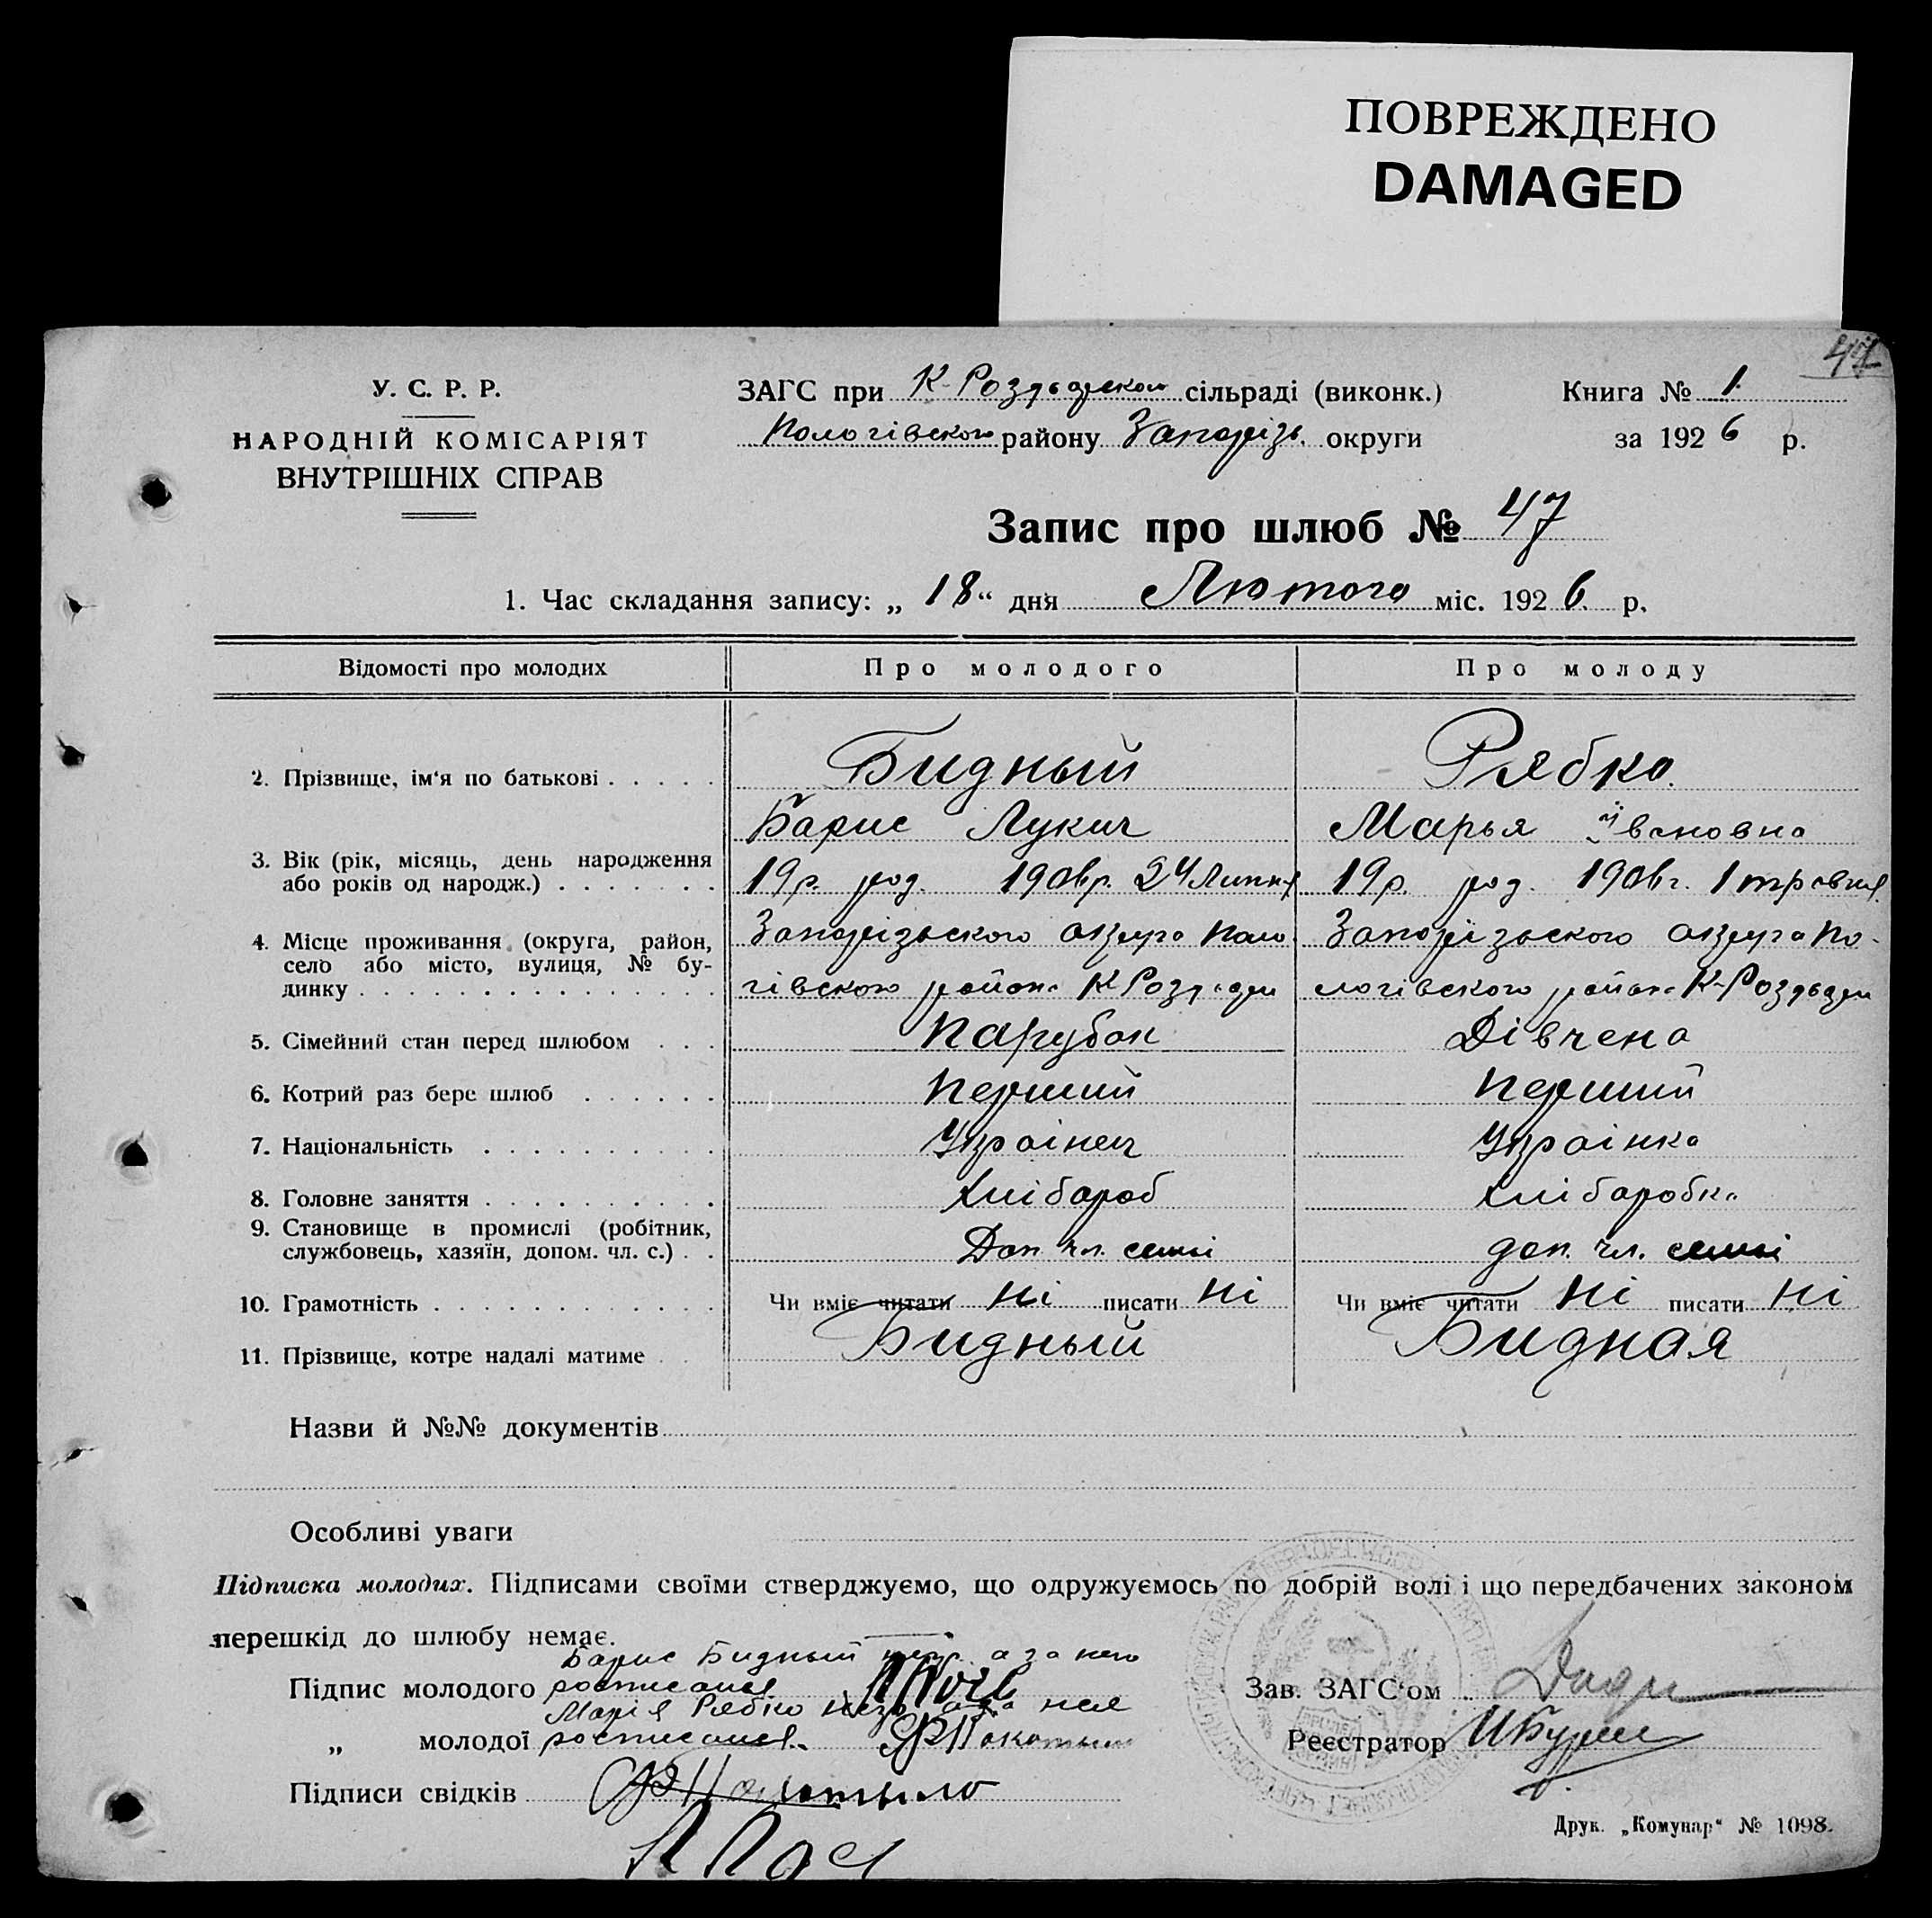 ПОВРЕЖДЕНО
DAMAGED
47
У. С. Р. Р.
НАРОДНІЙ КОМІСАРІЯТ
ВНУТРІШНІХ СПРАВ
ЗАГС при К-Роздорском сільраді (виконк.)
Пологівского району Запоріз. округи
Книга № 1
за 1926 р.
Запис про шлюб № 47
1. Час складання запису: „18“ дня Лютого міс. 1926 р.
Відомості про молодих Про молодого Про молоду
2. Прізвище, ім‘я по батькові . . . . . Бидный Рябко
Барис Лукич Марья Івановна
3. Вік (рік, місяць, день народження
або років од народж.) . . . . . . . 19 р. род. 1906 р. 24 Липня 19 р. род. 1906 г. 1 травня
4. Місце проживання (округа, район,
село або місто, вулиця, № бу-
динку . . . . . . . . . . . . . . . .
Запорізьского округа Поло- Запорізьского округа По-
гівского района К Роздори логівского района К-Роздори
5. Сімейний стан перед шлюбом . . . Парубок Дівчена
6. Котрий раз бере шлюб . . . . . . Перший Перший
7. Національність . . . . . . . . . . Украінец Украінка
8. Головне заняття . . . . . . . . . . Хлібароб Хлібаробка
9. Становище в промислі (робітник,
службовець, хазяїн, допом. чл. с.) . . Доп. чл. семьі доп. чл. семьі
10. Грамотність . . . . . . . . . . . . Чи вміє читати Ні писати Ні Чи вміє читати Ні писати Ні
11. Прізвище, котре надалі матиме . . Бидный Бидная
Назви й №№ документів
Особливі уваги
Підписка молодих. Підписами своїми стверджуємо, що одружуємось по добрій волі і що передбачених законом
перешкід до шлюбу немає.
Барис Бидный а за него
Підпис молодого росписался
Марія Рябко а за нея
„ молодої росписался
Підписи свідків
Зав. ЗАГС‘ом
Реєстратор
Друк. „Комунар“ № 1098.